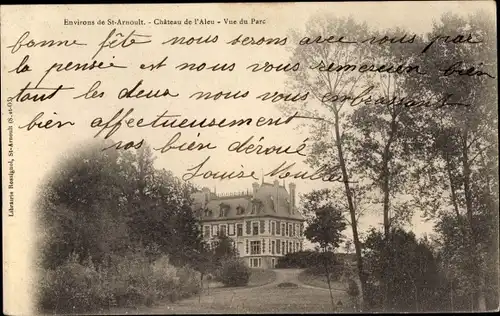 Environs de St-Arnoult. - Château de l'Aleu - Vue du Parc
Bonne fête nous serons avec nous par
la pensée et nous vous remercions bien
tant les deux nous vous embrassant
bien affectueusement
nos bien
Louise
Librairie Rossignol, St-Arnoult (S.-et-O.)